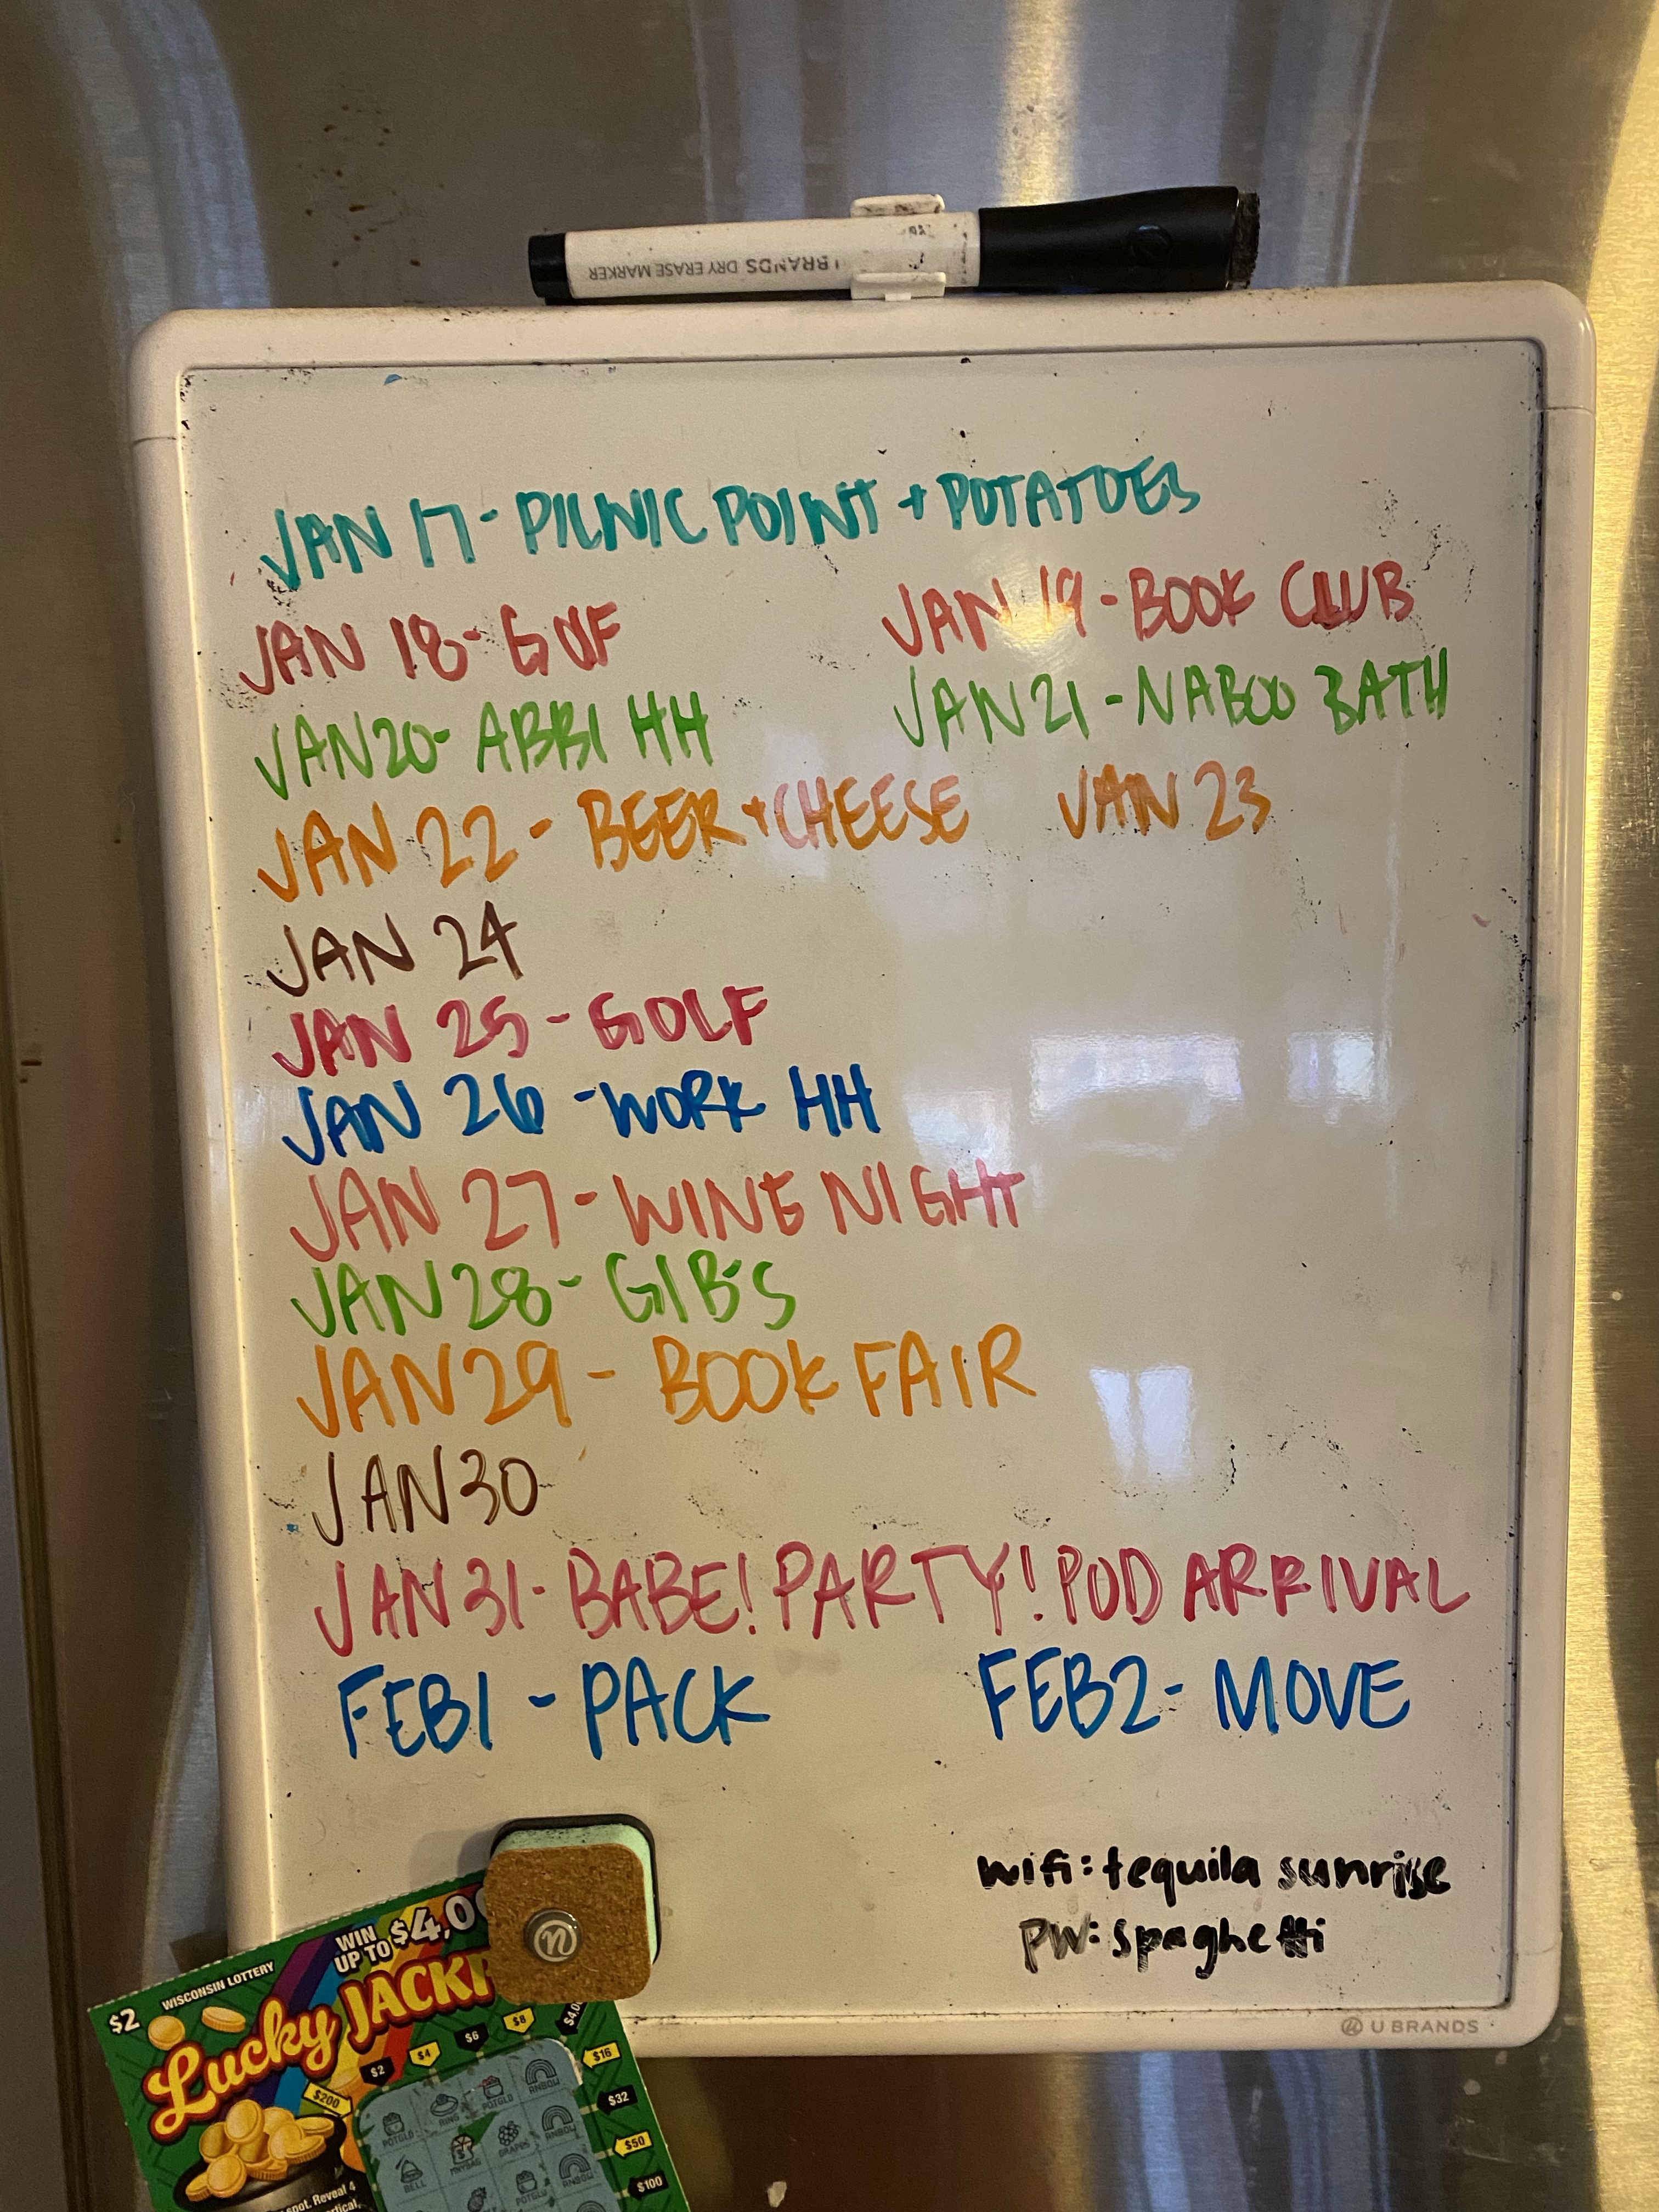 U BRANDS DRY ERASE MARKER
JAN 17 - PICNIC POINT + POTATOES
JAN 18 - GOLF JAN 19 - BOOK CLUB
JAN 20 - ABBI HH JAN 21 - NABOO BATH
JAN 22 - BEER + CHEESE JAN 23
JAN 24
JAN 25 - GOLF
JAN 26 - WORK HH
JAN 27 - WINE NIGHT
JAN 28 - GIB'S
JAN 29 - BOOK FAIR
JAN 30
JAN 31 - BABE! PARTY! POD ARRIVAL
FEB 1 - PACK FEB 2 - MOVE
wifi: tequila sunrise
PW: spaghetti
U BRANDS
n
WIN
UP TO $4,0
$2 WISCONSIN LOTTERY
Lucky JACKP
$2 $4 $6 $8 $4,0
$16
$32
$50
$100
$200
POTGLD RING POTGLD RNBOW
BELL MNYBAG GRAPES RNBOW
POTGLD RNBOW
spot. Reveal 4